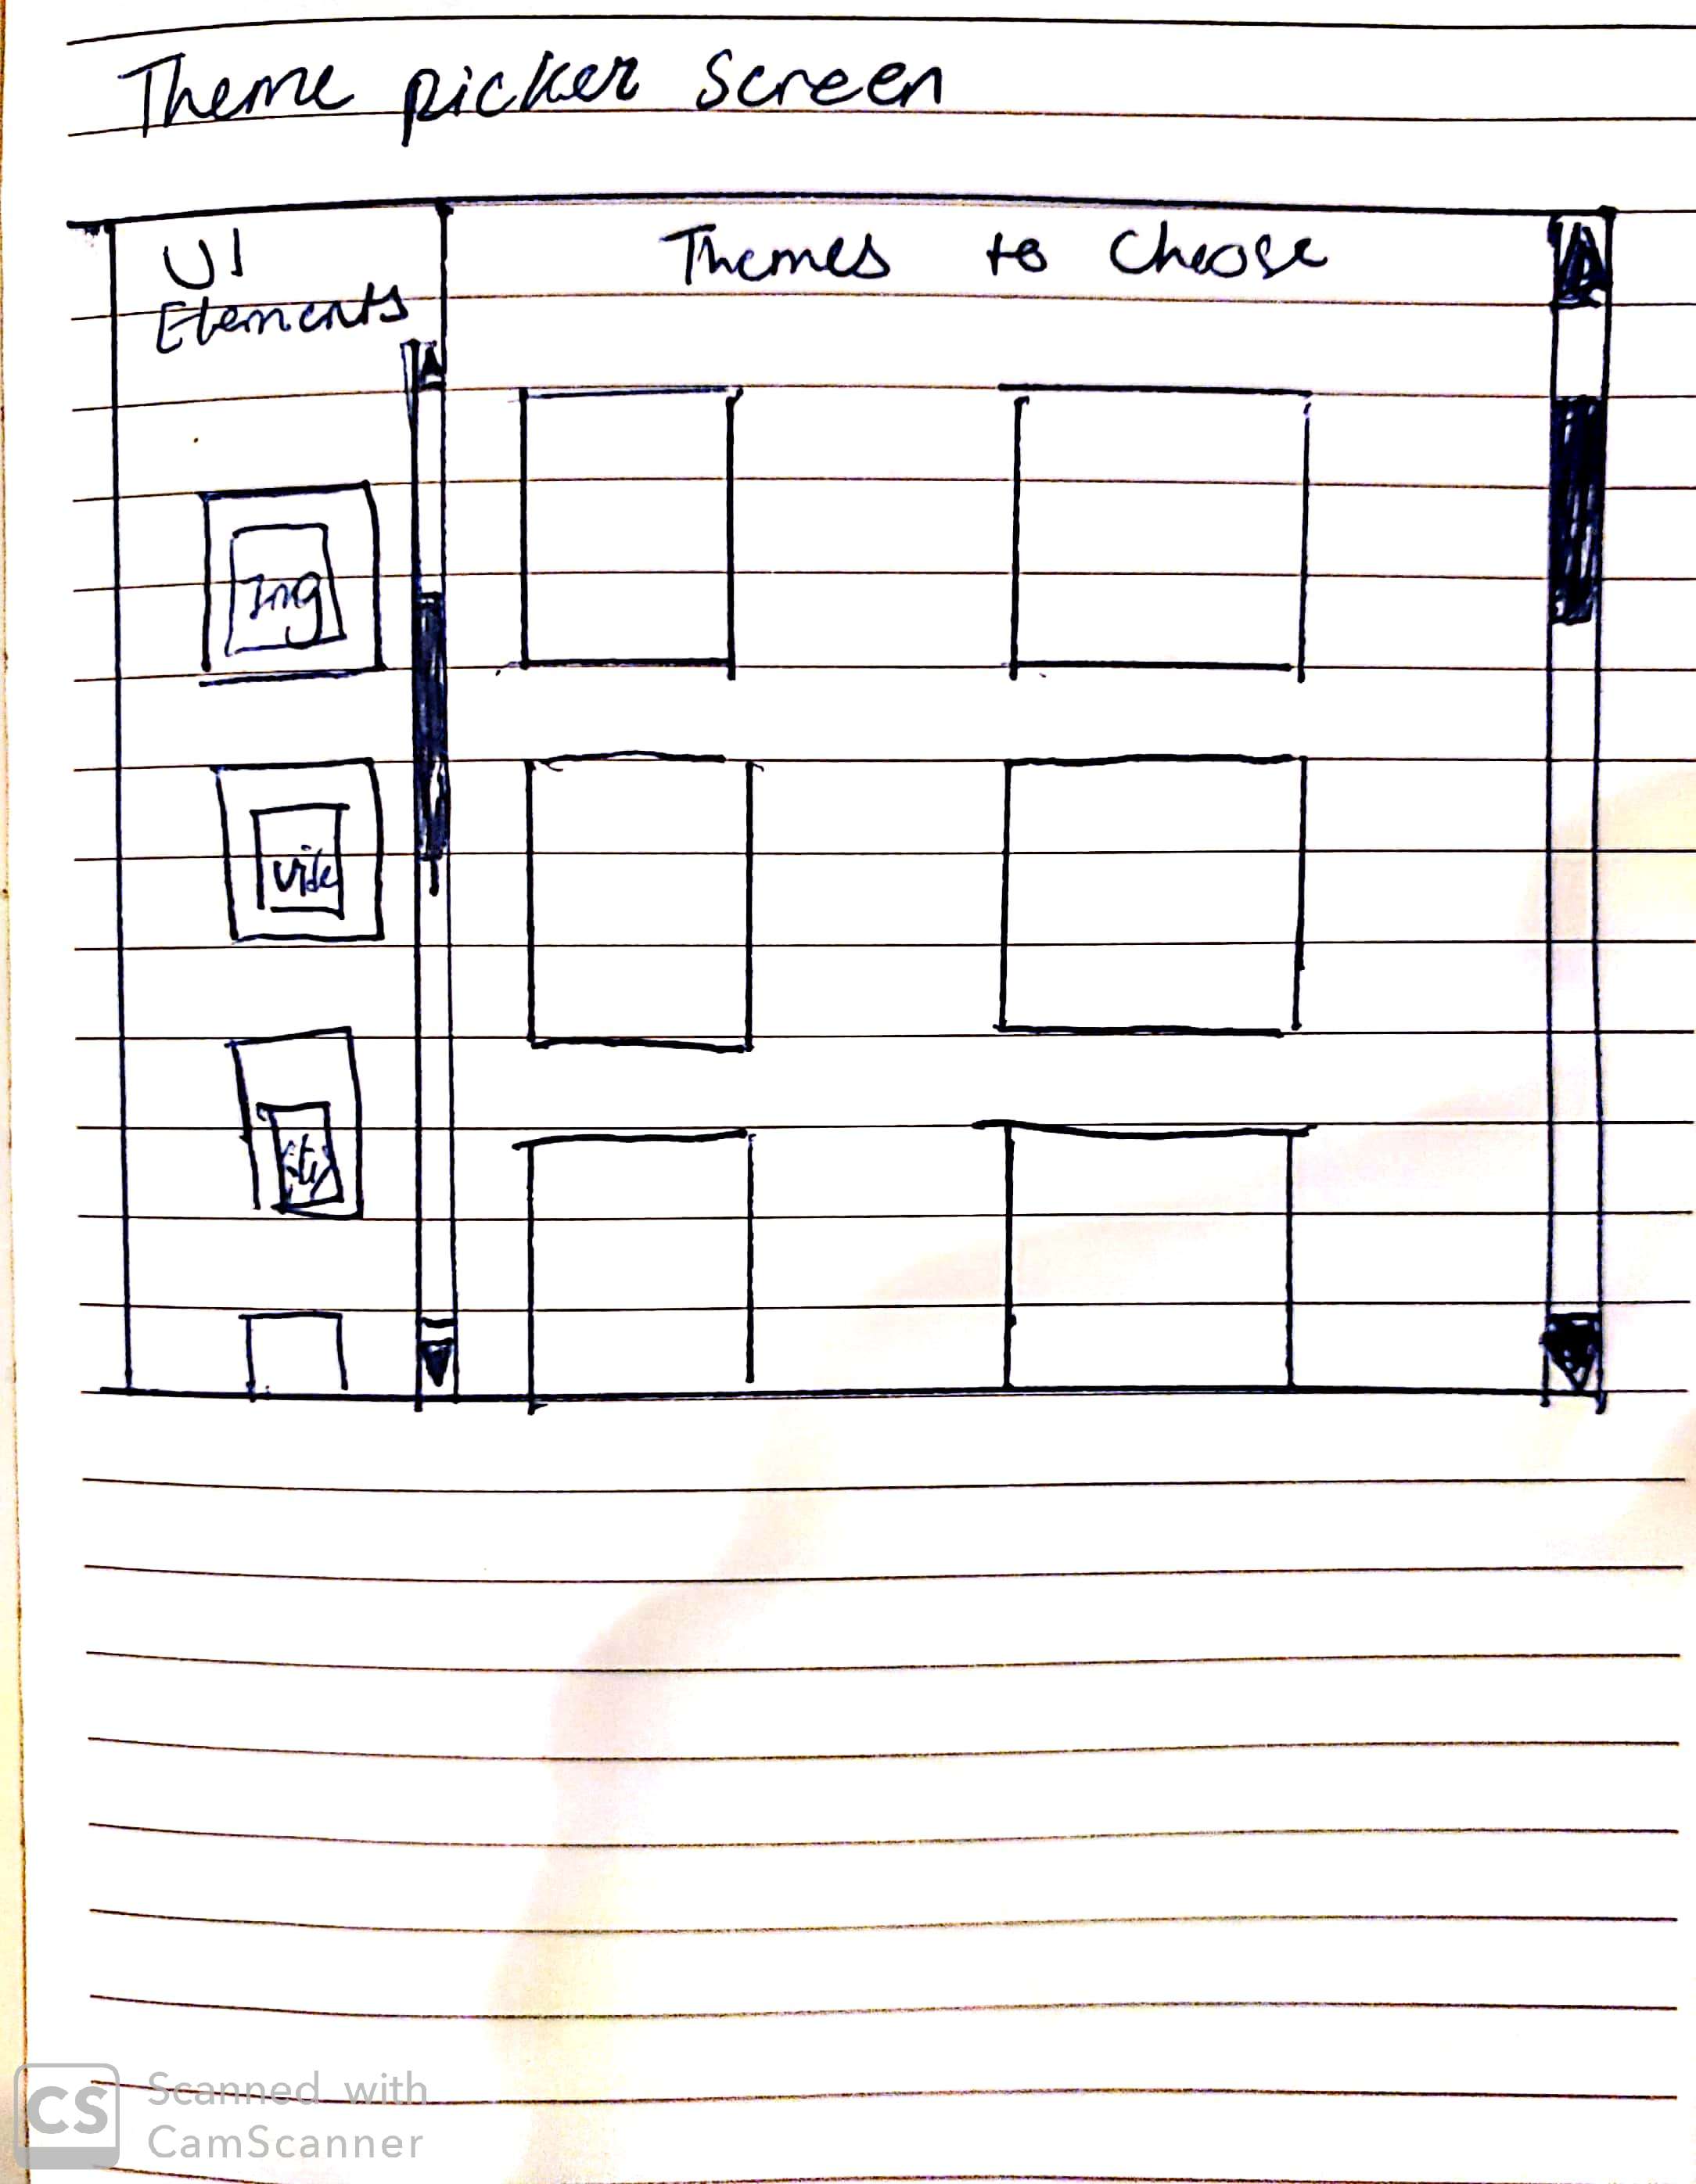 Theme picker screen
UI
Elements
Themes to choose
Img
Vide
CS
Scanned with
CamScanner